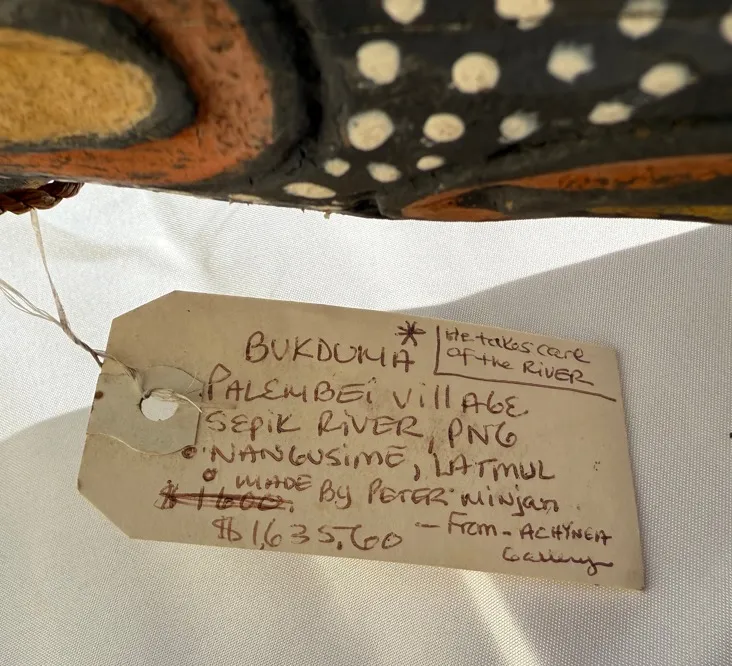 BUKDUMA *
He takes care
of the RIVER
PALEMBEi VillAGE
SEPIK RiVER, PNG
• NANGUSIME, LATMUL
• MADE By PETER MINJAN
$1600.
$1,635.60 – From – ACHYNEA
Gallery